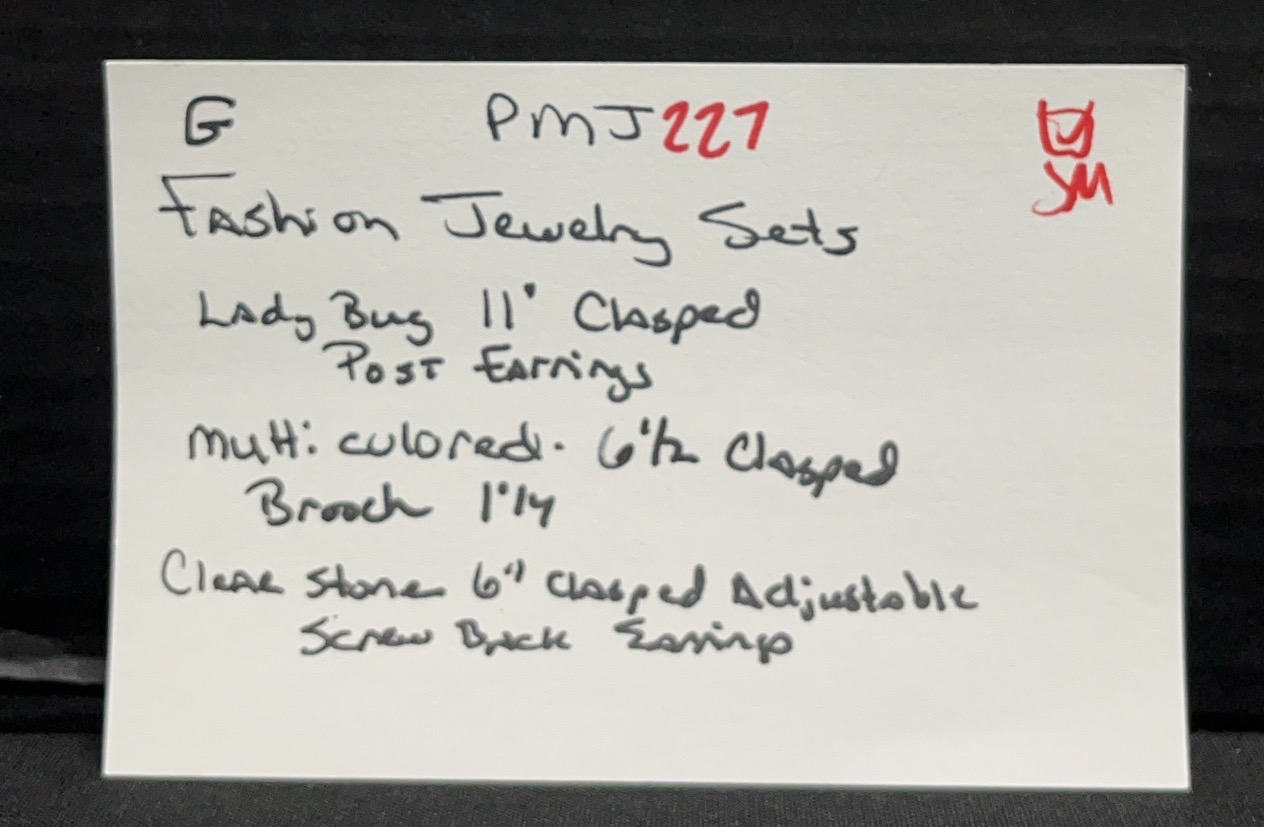 G PMJ227
JM
Fashion Jewelry Sets
Lady Bug 11" Clasped
Post Earrings
Multi colored. 6 1/2 Clasped
Brooch 1" 1/4
Clear Stone 6" Clasped Adjustable
Screw Back Earrings